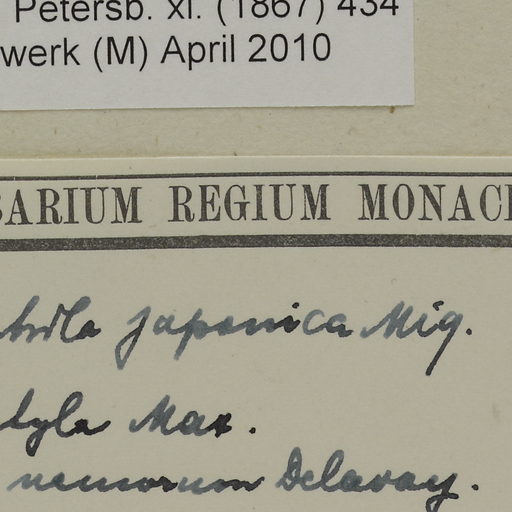 Petersb. xl. (1867) 434
werk (M) April 2010
BARIUM REGIUM MONACE
japonica Miq.
tyla Max.
nemorum Delavay.